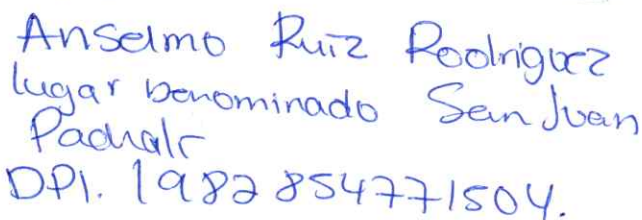 Anselmo Ruiz Rodriguez
lugar denominado San Juan
Pachalr
DPI. 1982 85477 1504.